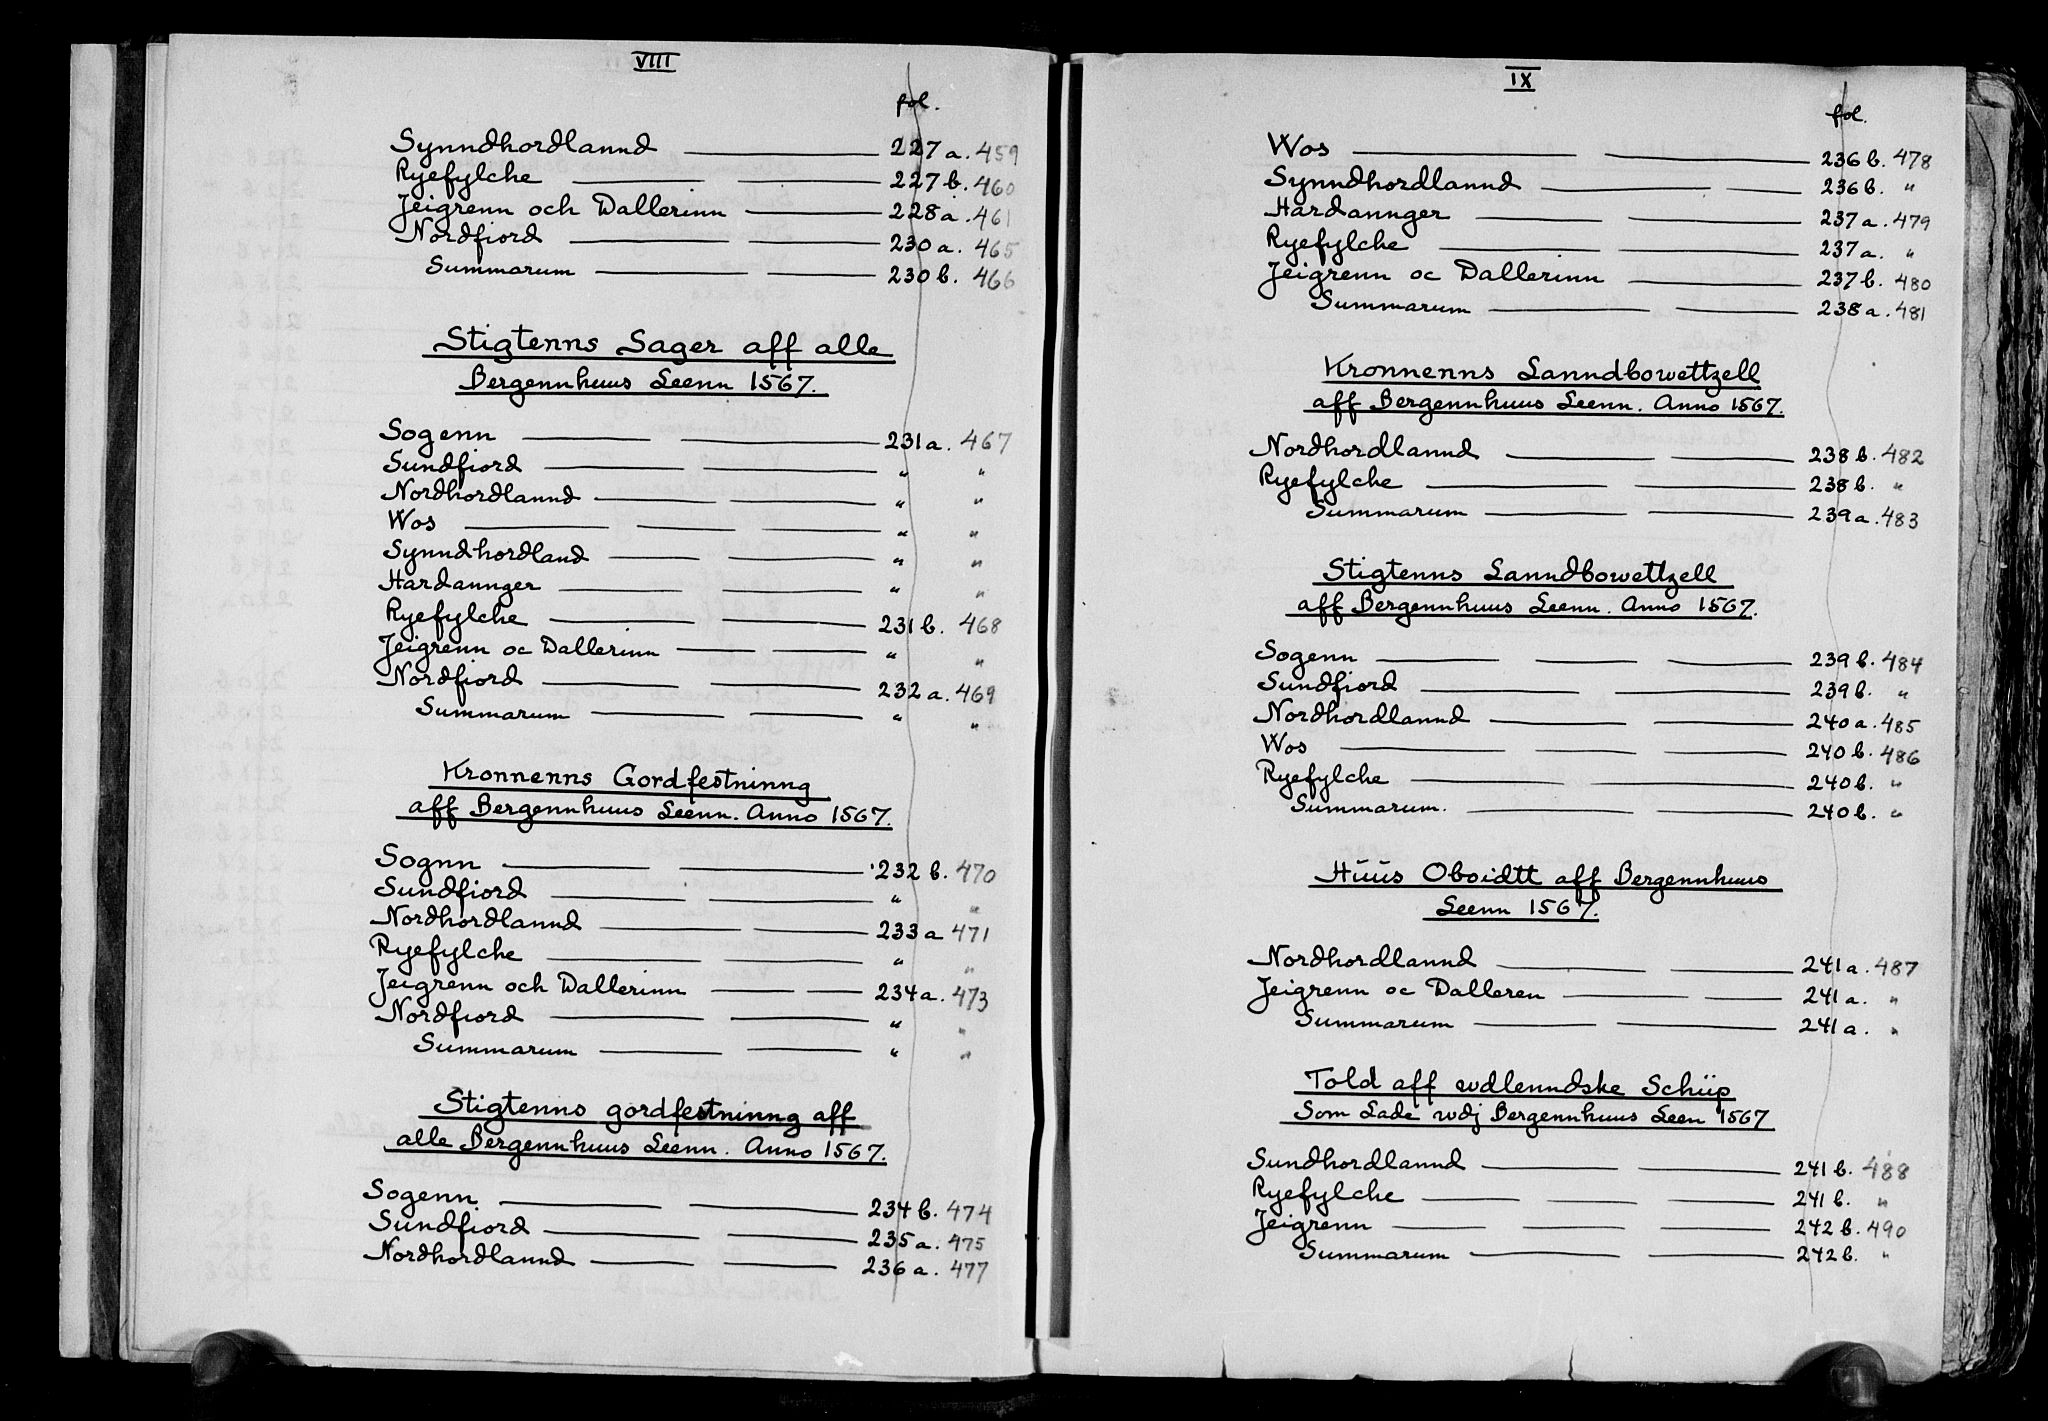 VIII
fol.
Synndhordlannd 227 a. 459
Ryefylche 227 b. 460
Jeigrenn och Dallerinn 228 a. 461
Nordfiord 230 a. 465
Summarum 230 b. 466
Stigtenns Sager aff alle
Bergennhuus Leenn 1567.
Sogenn 231 a. 467
Sundfiord " "
Nordhordlannd " "
Wos " "
Synndhordland " "
Hardannger " "
Ryefylche 231 b. 468
Jeigrenn oc Dallerinn " "
Nordfiord 232 a. 469
Summarum " "
Kronnenns Gordfestninng
aff Bergennhuus Leenn. Anno 1567.
Sognn 232 b. 470
Sundfiord " "
Nordhordlannd 233 a 471
Ryefylche " "
Jeigrenn och Dallerinn 234 a. 473
Nordfiord " "
Summarum " "
Stigtenns gordfestninng aff
alle Bergennhuus Leenn. Anno 1567.
Sogenn 234 b. 474
Sundfiord 235 a. 475
Nordhordlannd 236 a. 477
IX
fol.
Wos 236 b. 478
Synndhordlannd 236 b. "
Hardannger 237 a. 479
Ryefylche 237 a. "
Jeigrenn oc Dallerinn 237 b. 480
Summarum 238 a. 481
Kronnenns Lanndbowettzell
aff Bergennhuus Leenn. Anno 1567.
Nordhordlannd 238 b. 482
Ryefylche 238 b. "
Summarum 239 a. 483
Stigtenns Lanndbowettzell
aff Bergennhuus Leenn. Anno 1567.
Sogenn 239 b. 484
Sundfiord 239 b. "
Nordhordlannd 240 a. 485
Wos 240 b. 486
Ryefylche 240 b. "
Summarum. 240 b. "
Huus Oboidtt aff Bergennhuus
Leenn 1567.
Nordhordlannd 241 a. 487
Jeigrenn oc Dalleren 241 a. "
Summarum 241 a. "
Told aff wdlenndske Schiip
Som Lade wdj Bergennhuus Leen 1567
Sundhordlannd 241 b. 488
Ryefylche 241 b. "
Jeigrenn 242 b. 490
Summarum 242 b. "